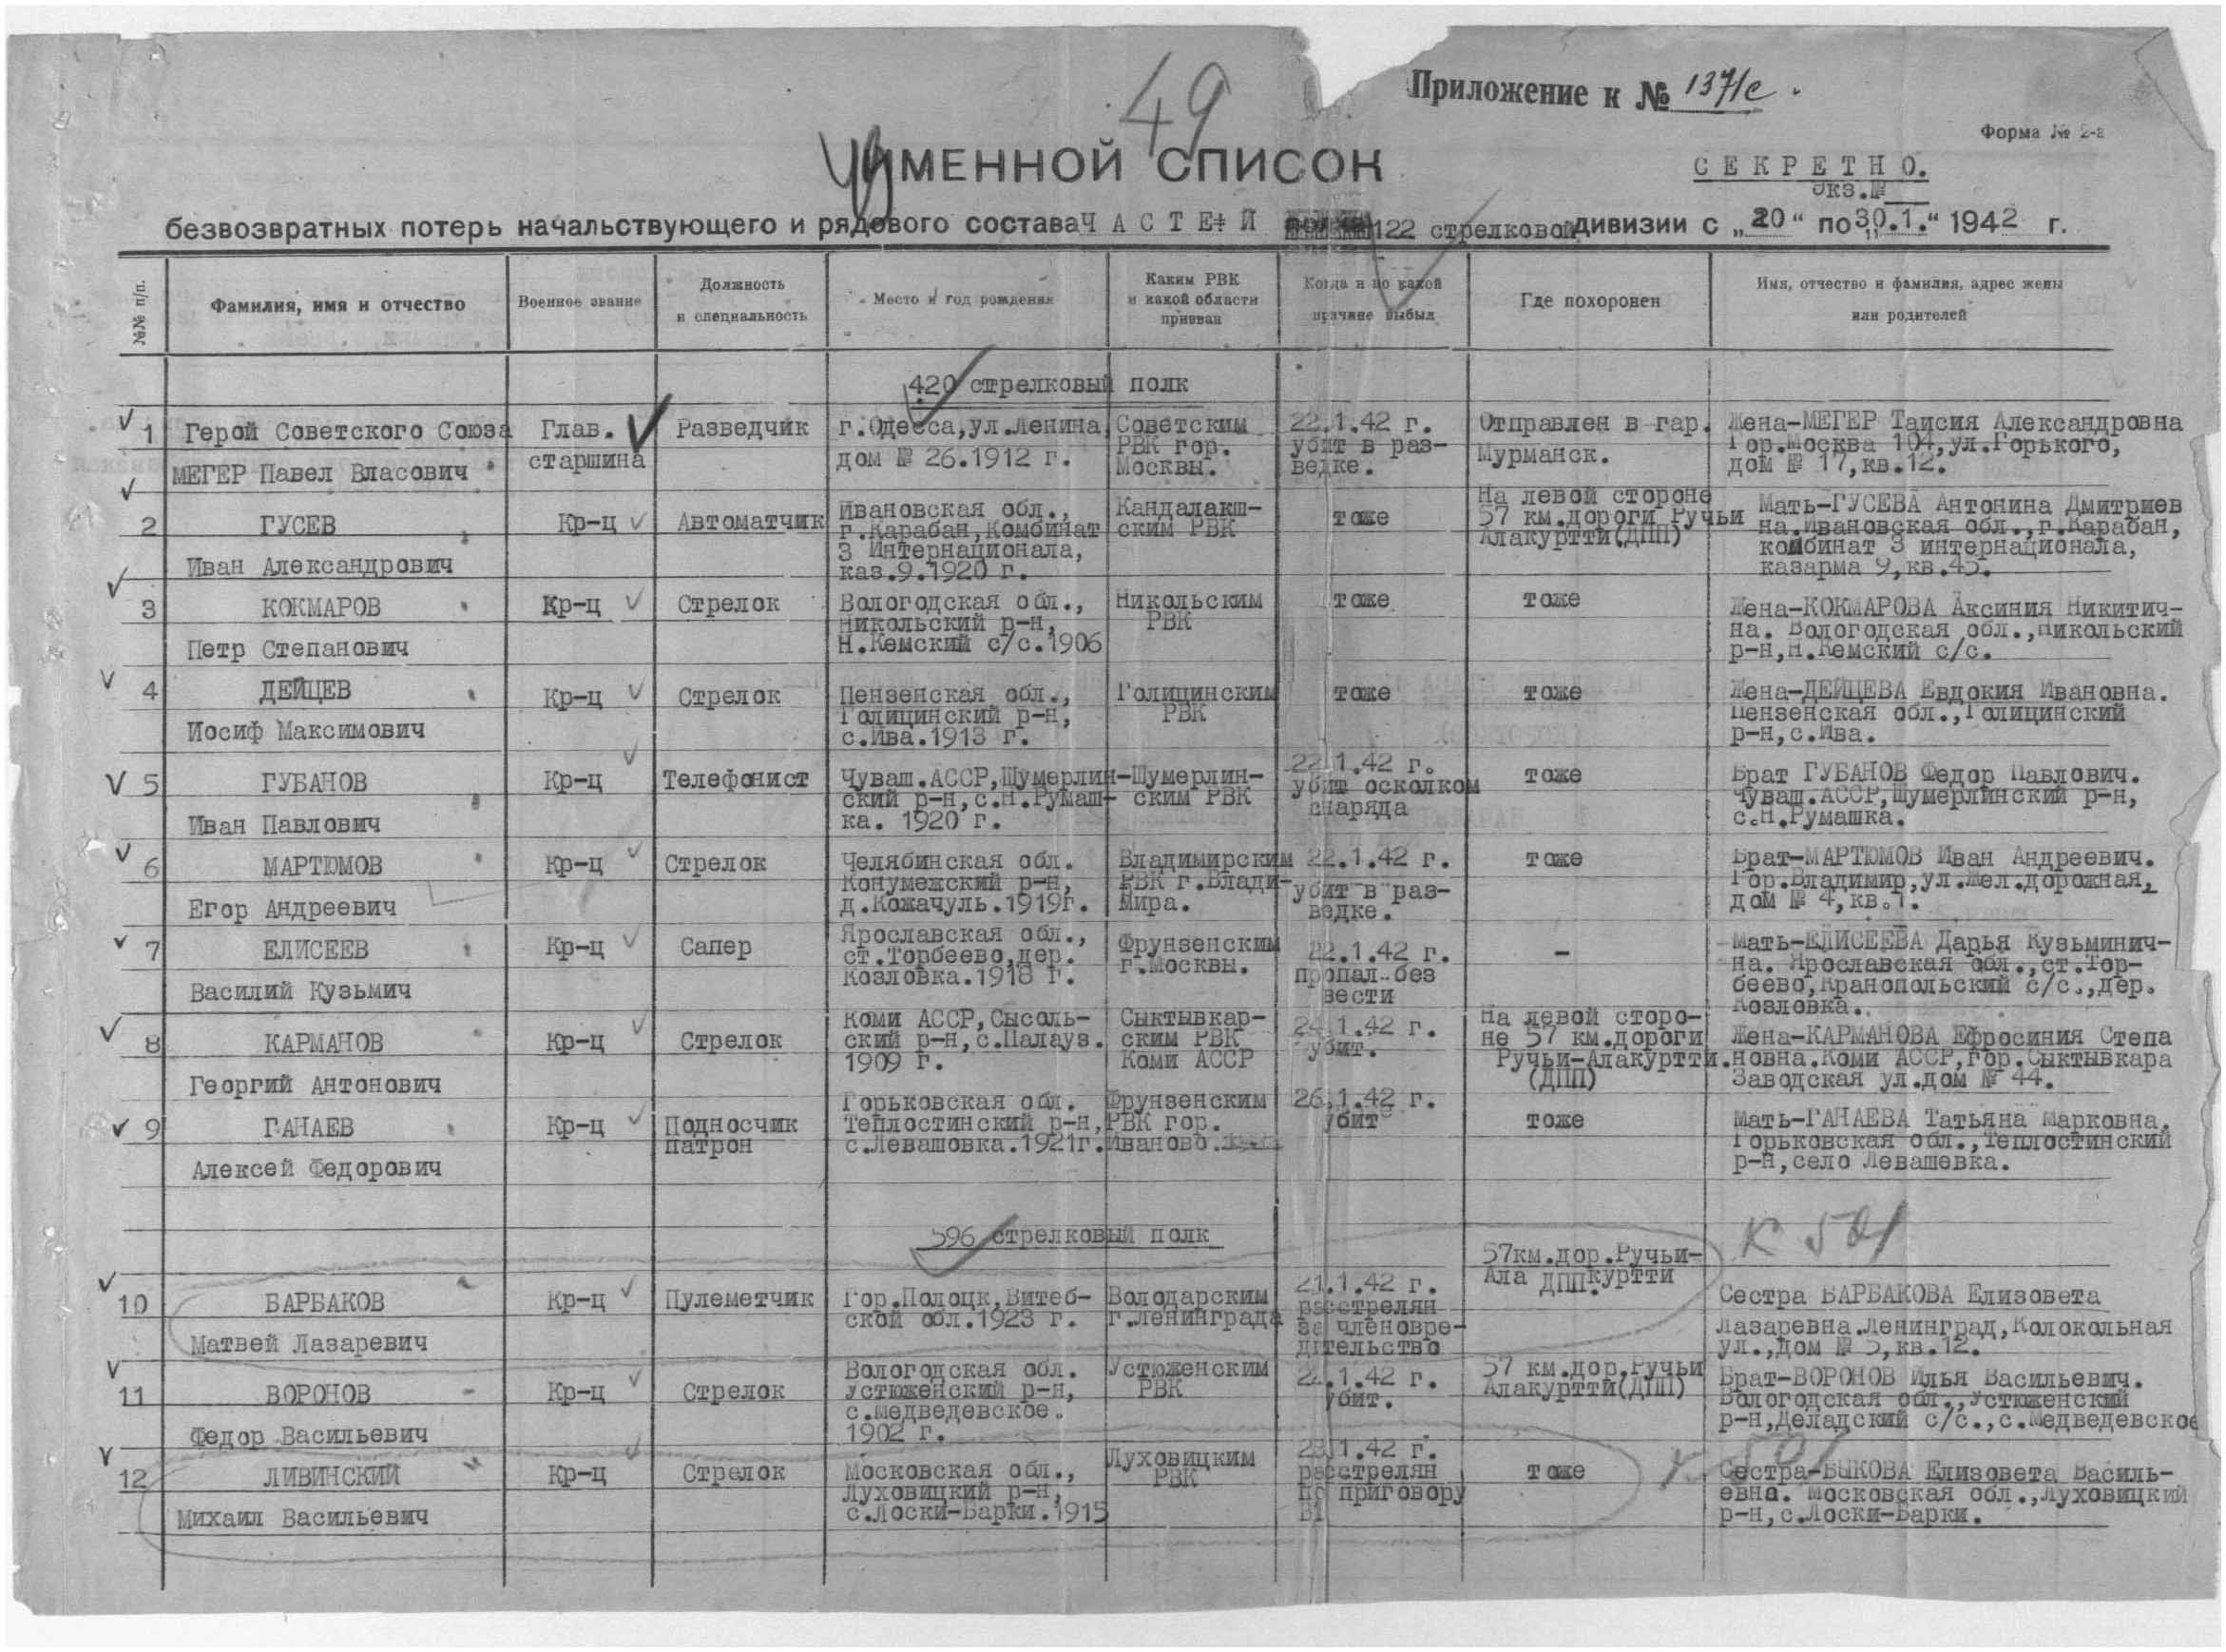 49
Приложение к № 137/с.
Форма № 2-а
ИМЕННОЙ СПИСОК
СЕКРЕТНО.
Экз.№
безвозвратных потерь начальствующего и рядового состава ЧАСТЕЙ 122 стрелковой дивизии с „20“ по „30.1.“ 1942 г.
№№ п/п.
Фамилия, имя и отчество
Военное звание
Должность
и специальность
Место и год рождения
Каким РВК
и какой области
призван
Когда и по какой
причине выбыл
Где похоронен
Имя, отчество и фамилия, адрес жены
или родителей
420 стрелковый полк
1
Герой Советского Союза
МЕГЕР Павел Власович
Глав.
старшина
Разведчик
г.Одесса,ул.Ленина,
дом № 26.1912 г.
Советским
РВК гор.
Москвы.
22.1.42 г.
убит в раз-
ведке.
Отправлен в гар.
Мурманск.
Жена-МЕГЕР Таисия Александровна
Гор.Москва 104,ул.Горького,
дом № 17,кв.12.
2
ГУСЕВ
Иван Александрович
Кр-ц
Автоматчик
Ивановская обл.,
г.Карабан,Комбинат
3 Интернационала,
каз.9.1920 г.
Кандалакш-
ским РВК
тоже
На левой стороне
57 км.дороги Ручьи
Алакуртти(ДПП)
Мать-ГУСЕВА Антонина Дмитриев
на.Ивановская обл.,г.Карабан,
комбинат 3 интернационала,
казарма 9,кв.45.
3
КОКМАРОВ
Петр Степанович
Кр-ц
Стрелок
Вологодская обл.,
Никольский р-н,
Н.Кемский с/с.1906
Никольским
РВК
тоже
тоже
Жена-КОКМАРОВА Аксиния Никитич-
на. Вологодская обл.,Никольский
р-н,Н.Кемский с/с.
4
ДЕЙЦЕВ
Иосиф Максимович
Кр-ц
Стрелок
Пензенская обл.,
Голицинский р-н,
с.Ива.1913 г.
Голицинским
РВК
тоже
тоже
Жена-ДЕЙЦЕВА Евдокия Ивановна.
Пензенская обл.,Голицинский
р-н,с.Ива.
5
ГУБАНОВ
Иван Павлович
Кр-ц
Телефонист
Чуваш.АССР,Шумерлин-
ский р-н,с.Н.Румаш-
ка. 1920 г.
Шумерлин-
ским РВК
22.1.42 г.
убит осколком
снаряда
тоже
Брат ГУБАНОВ Федор Павлович.
Чуваш.АССР,Шумерлинский р-н,
с.Н.Румашка.
6
МАРТЮМОВ
Егор Андреевич
Кр-ц
Стрелок
Челябинская обл.
Конумежский р-н,
д.Кожачуль.1919г.
Владимирским
РВК г.Влади-
мира.
22.1.42 г.
убит в раз-
ведке.
тоже
Брат-МАРТЮМОВ Иван Андреевич.
Гор.Владимир,ул.Жел.дорожная,
дом № 4,кв.1.
7
ЕЛИСЕЕВ
Василий Кузьмич
Кр-ц
Сапер
Ярославская обл.,
ст.Торбеево,дер.
Козловка.1918 г.
Фрунзенским
г.Москвы.
22.1.42 г.
пропал без
вести
-
Мать-ЕЛИСЕЕВА Дарья Кузьминич-
на. Ярославская обл.,ст.Тор-
беево,Кранопольский с/с.,дер.
Козловка.
8
КАРМАНОВ
Георгий Антонович
Кр-ц
Стрелок
Коми АССР,Сысоль-
ский р-н,с.Палауз.
1909 г.
Сыктывкар-
ским РВК
Коми АССР
24.1.42 г.
убит.
На левой сторо-
не 57 км.дороги
Ручьи-Алакуртти.
(ДПП)
Жена-КАРМАНОВА Ефросиния Степа
новна.Коми АССР,гор.Сыктывкара
Заводская ул.дом № 44.
9
ГАНАЕВ
Алексей Федорович
Кр-ц
Подносчик
патрон
Горьковская обл.
Теплостинский р-н,
с.Левашовка.1921г.
Фрунзенским
РВК гор.
Иваново.
26.1.42 г.
убит
тоже
Мать-ГАНАЕВА Татьяна Марковна.
Горьковская обл.,Теплостинский
р-н,село Левашевка.
596 стрелковый полк
К 501
10
БАРБАКОВ
Матвей Лазаревич
Кр-ц
Пулеметчик
Гор.Полоцк,Витеб-
ской обл.1923 г.
Володарским
г.Ленинграда
21.1.42 г.
расстрелян
за членовре-
дительство
57км.дор.Ручьи-
Ала куртти
ДПП.
Сестра БАРБАКОВА Елизовета
Лазаревна.Ленинград,Колокольная
ул.,дом № 5,кв.12.
11
ВОРОНОВ
Федор Васильевич
Кр-ц
Стрелок
Вологодская обл.
Устюженский р-н,
с.Медведевское.
1902 г.
Устюженским
РВК
22.1.42 г.
убит.
57 км.дор.Ручьи
Алакуртти(ДПП)
Брат-ВОРОНОВ Илья Васильевич.
Вологодская обл.,Устюженский
р-н,Деладский с/с.,с.Медведевское
К 501
12
ЛИВИНСКИЙ
Михаил Васильевич
Кр-ц
Стрелок
Московская обл.,
Луховицкий р-н,
с.Лоски-Барки.1915
Луховицким
РВК
23.1.42 г.
расстрелян
по приговору
ВТ
тоже
Сестра-БЫКОВА Елизовета Василь-
евна. Московская обл.,Луховицкий
р-н,с.Лоски-Барки.